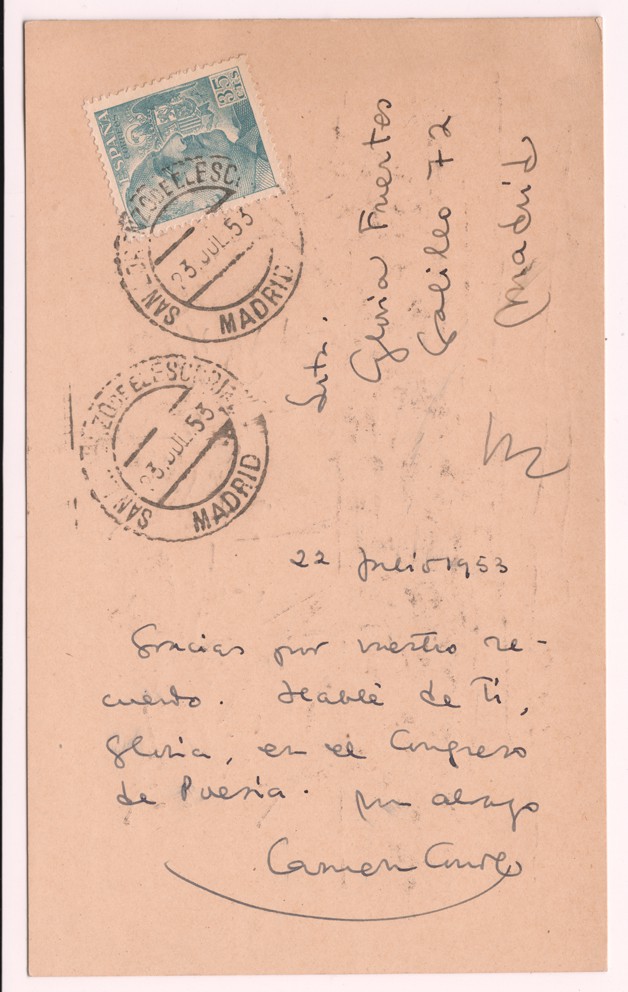 ESPAÑA
35 CTS
SAN LORENZO DE EL ESC.
23.JUL.53
MADRID
SAN LORENZO DE EL ESCORIAL
23.JUL.53
MADRID
Srta.
Gloria Fuertes
Galileo 72
Madrid
22 Julio 1953
Gracias por vuestro re-
cuerdo. Hablé de Ti,
Gloria, en el Congreso
de Poesía. Un abrazo
Carmen Conde